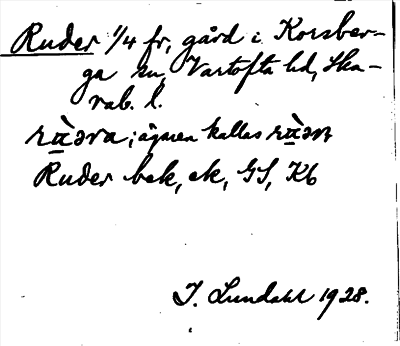 Ruder 1/4 fr, gård i Korsber-
ga sn, Vartofta hd, Ska-
rab. l.
; ägaren kallas
Ruder bek, ek, GS, Kb
I. Lundahl 1928.